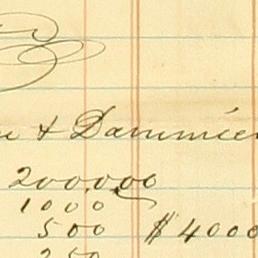 & Dammier
200,000
1000
500 $4000
250